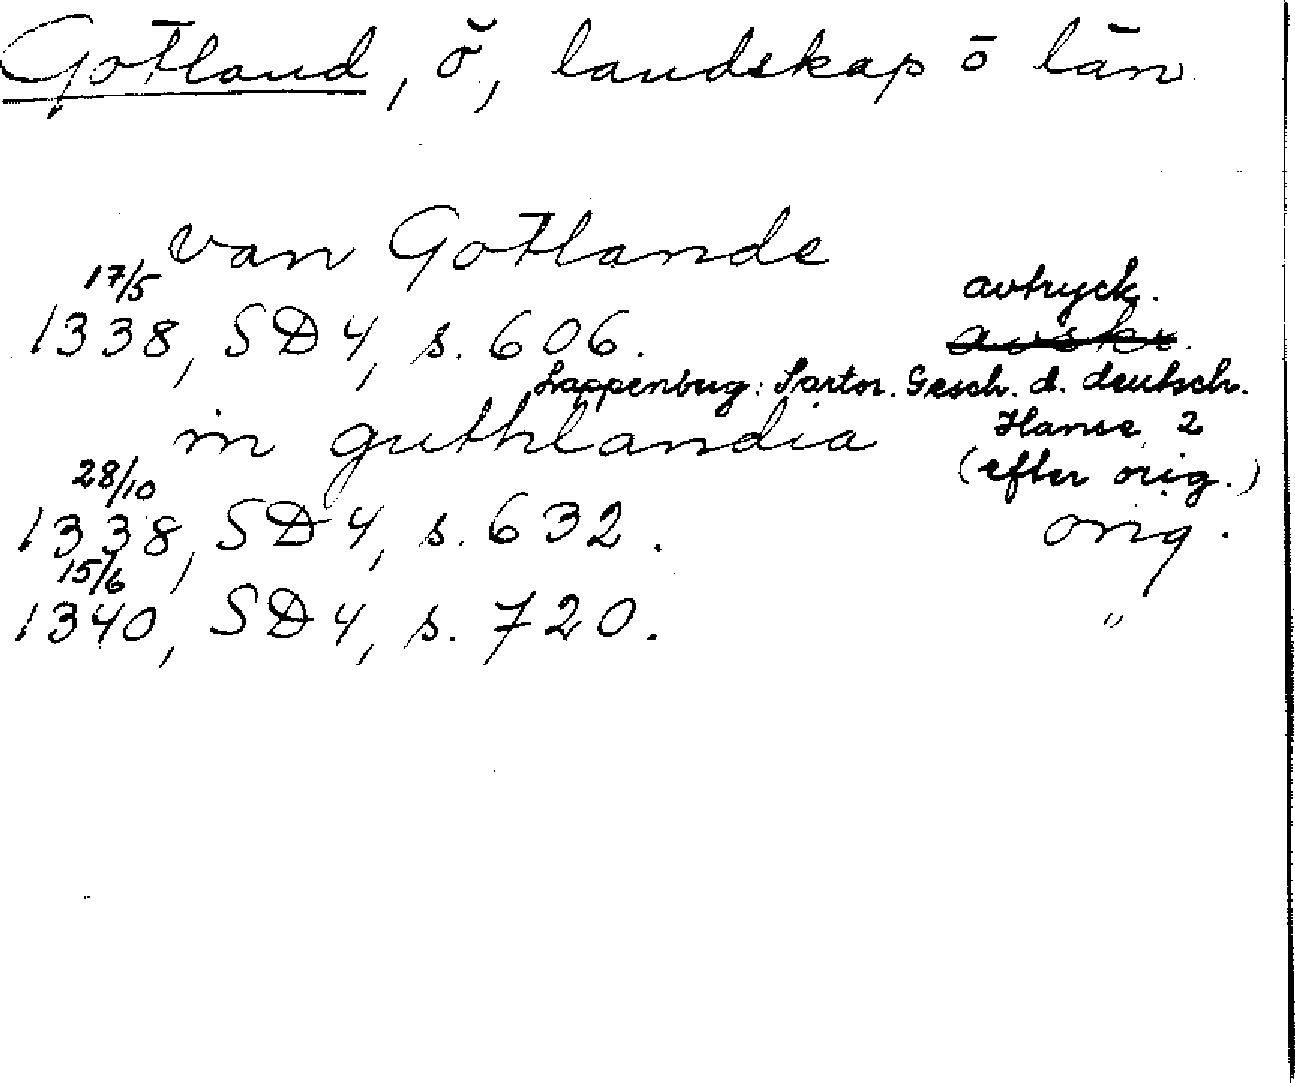 Gotland, ö, landskap o län
van Gotlande
17/5 avtryck.
1338, SD 4, s. 606. avskr.
Lappenbug: Sartor. Gesch. d. deutsch.
in guthlandia Hanse, 2
28/10 (efter orig.)
1338, SD 4, s. 632. orig.
15/6
1340, SD 4, s. 720. "